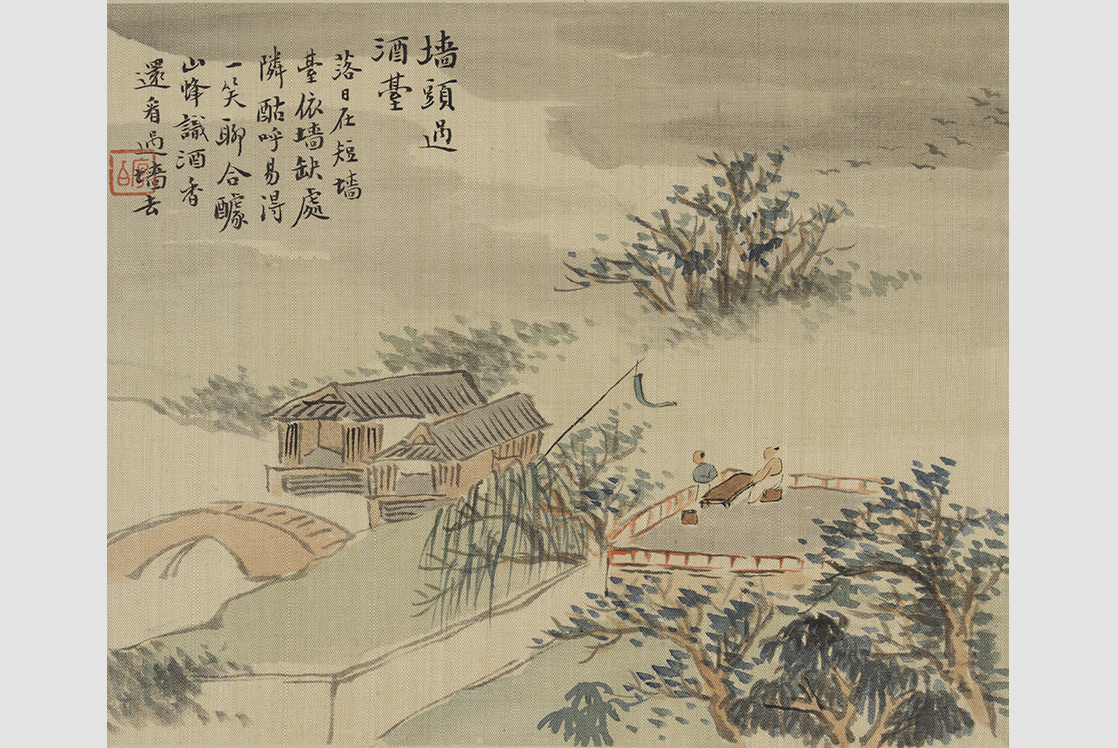 墙頭過
酒臺
落日在短墙
臺依墙缺處
隣酤呼易得
一笑聊合醵
山蜂識酒香
還看過墙去